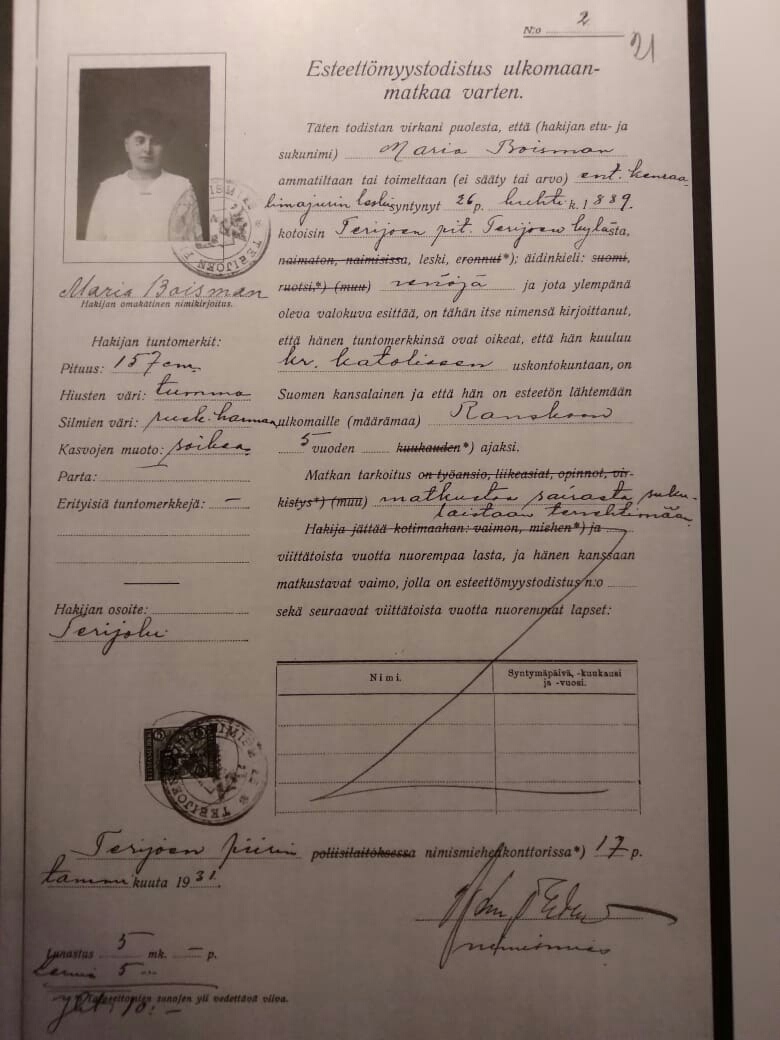 N:o 2
21
Esteettömyystodistus ulkomaan-
matkaa varten.
Täten todistan virkani puolesta, että (hakijan etu- ja
sukunimi) Maria Boisman
ammatiltaan tai toimeltaan (ei sääty tai arvo) ent. kenraa-
limajurin leski syntynyt 26 p. huhti k. 1889.
kotoisin Terijoen pit. Terijoen kylästä,
naimaton, naimisissa, leski, eronnut*); äidinkieli: suomi,
ruotsi,*) (muu) venäjä ja jota ylempänä
oleva valokuva esittää, on tähän itse nimensä kirjoittanut,
että hänen tuntomerkkinsä ovat oikeat, että hän kuuluu
kr. katoliseen uskontokuntaan, on
Suomen kansalainen ja että hän on esteetön lähtemään
ulkomaille (määrämaa) Ranskaan
5 vuoden kuukauden*) ajaksi.
Matkan tarkoitus on työansio, liikeasiat, opinnot, vir-
kistys*) (muu) matkustaa sairasta suku-
laistaan tervehtimään
Hakija jättää kotimaahan: vaimon, miehen*) ja
viittätoista vuotta nuorempaa lasta, ja hänen kanssaan
matkustavat vaimo, jolla on esteettömyystodistus n:o
sekä seuraavat viittätoista vuotta nuoremmat lapset:
Nimi.
Syntymäpäivä, -kuukausi
ja -vuosi.
Maria Boisman
Hakijan omakätinen nimikirjoitus.
Hakijan tuntomerkit:
Pituus: 157 cm.
Hiusten väri: tumma
Silmien väri: rusk. harmaa
Kasvojen muoto: soikea
Parta:
Erityisiä tuntomerkkejä: —
Hakijan osoite:
Terijoki
Terijoen piirin poliisilaitoksessa nimismiehenkonttorissa*) 17 p.
tammi kuuta 1931.
nimismies
Lunastus 5 mk. — p.
Leima 5 —
Yht. 10: —
sanojen yli vedettävä viiva.